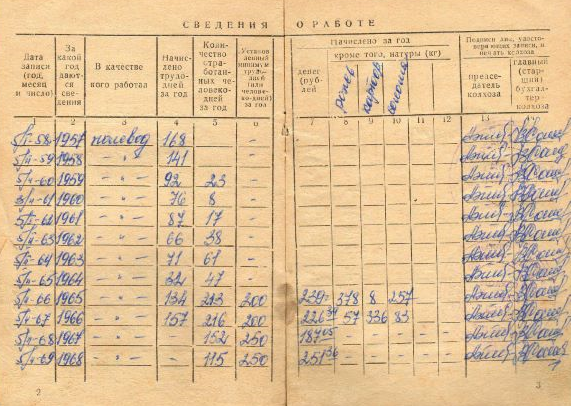 СВЕДЕНИЯ О РАБОТЕ
Дата записи (год, месяц и число)
За какой год даются сведения
В качестве кого работал
Начислено трудодней за год
Количество отработанных человекодней за год
Установленный минимум трудодней (или человекодней) за год
Начислено за год
денег (рублей)
кроме того, натуры (кг)
Подписи лиц, удостоверивших записи, и печать колхоза
председатель колхоза
главный (старший) бухгалтер колхоза
2 3 4 5 6 7 8 9 10 11 12 13
5/II-58 1957 полевод 168
5/II-59 1958 -"- 141
5/II-60 1959 -"- 92 23
5/II-61 1960 -"- 76 8 -
5/II-62 1961 -"- 87 17 -
5/II-63 1962 -"- 66 38 -
5/II-64 1963 -"- 71 61 -
5/II-65 1964 -"- 47
5/II-66 1965 -"- 134 213 200 378 8 257
5/II-67 1966 -"- 157 216 200 57 336 83
5/II-68 1967 -"- - 152 250 187 05 - - -
5/II-69 1968 -"- - 115 250 251 36 - - -
2 3